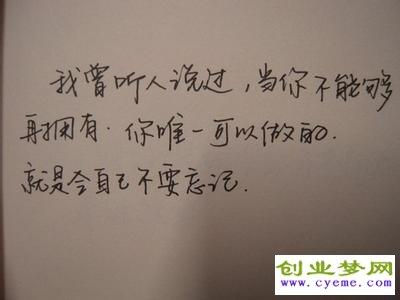 我曾听人说过，当你不能够
再拥有．你唯一可以做的．
就是令自己不要忘记．
创业梦网
www.cyeme.com